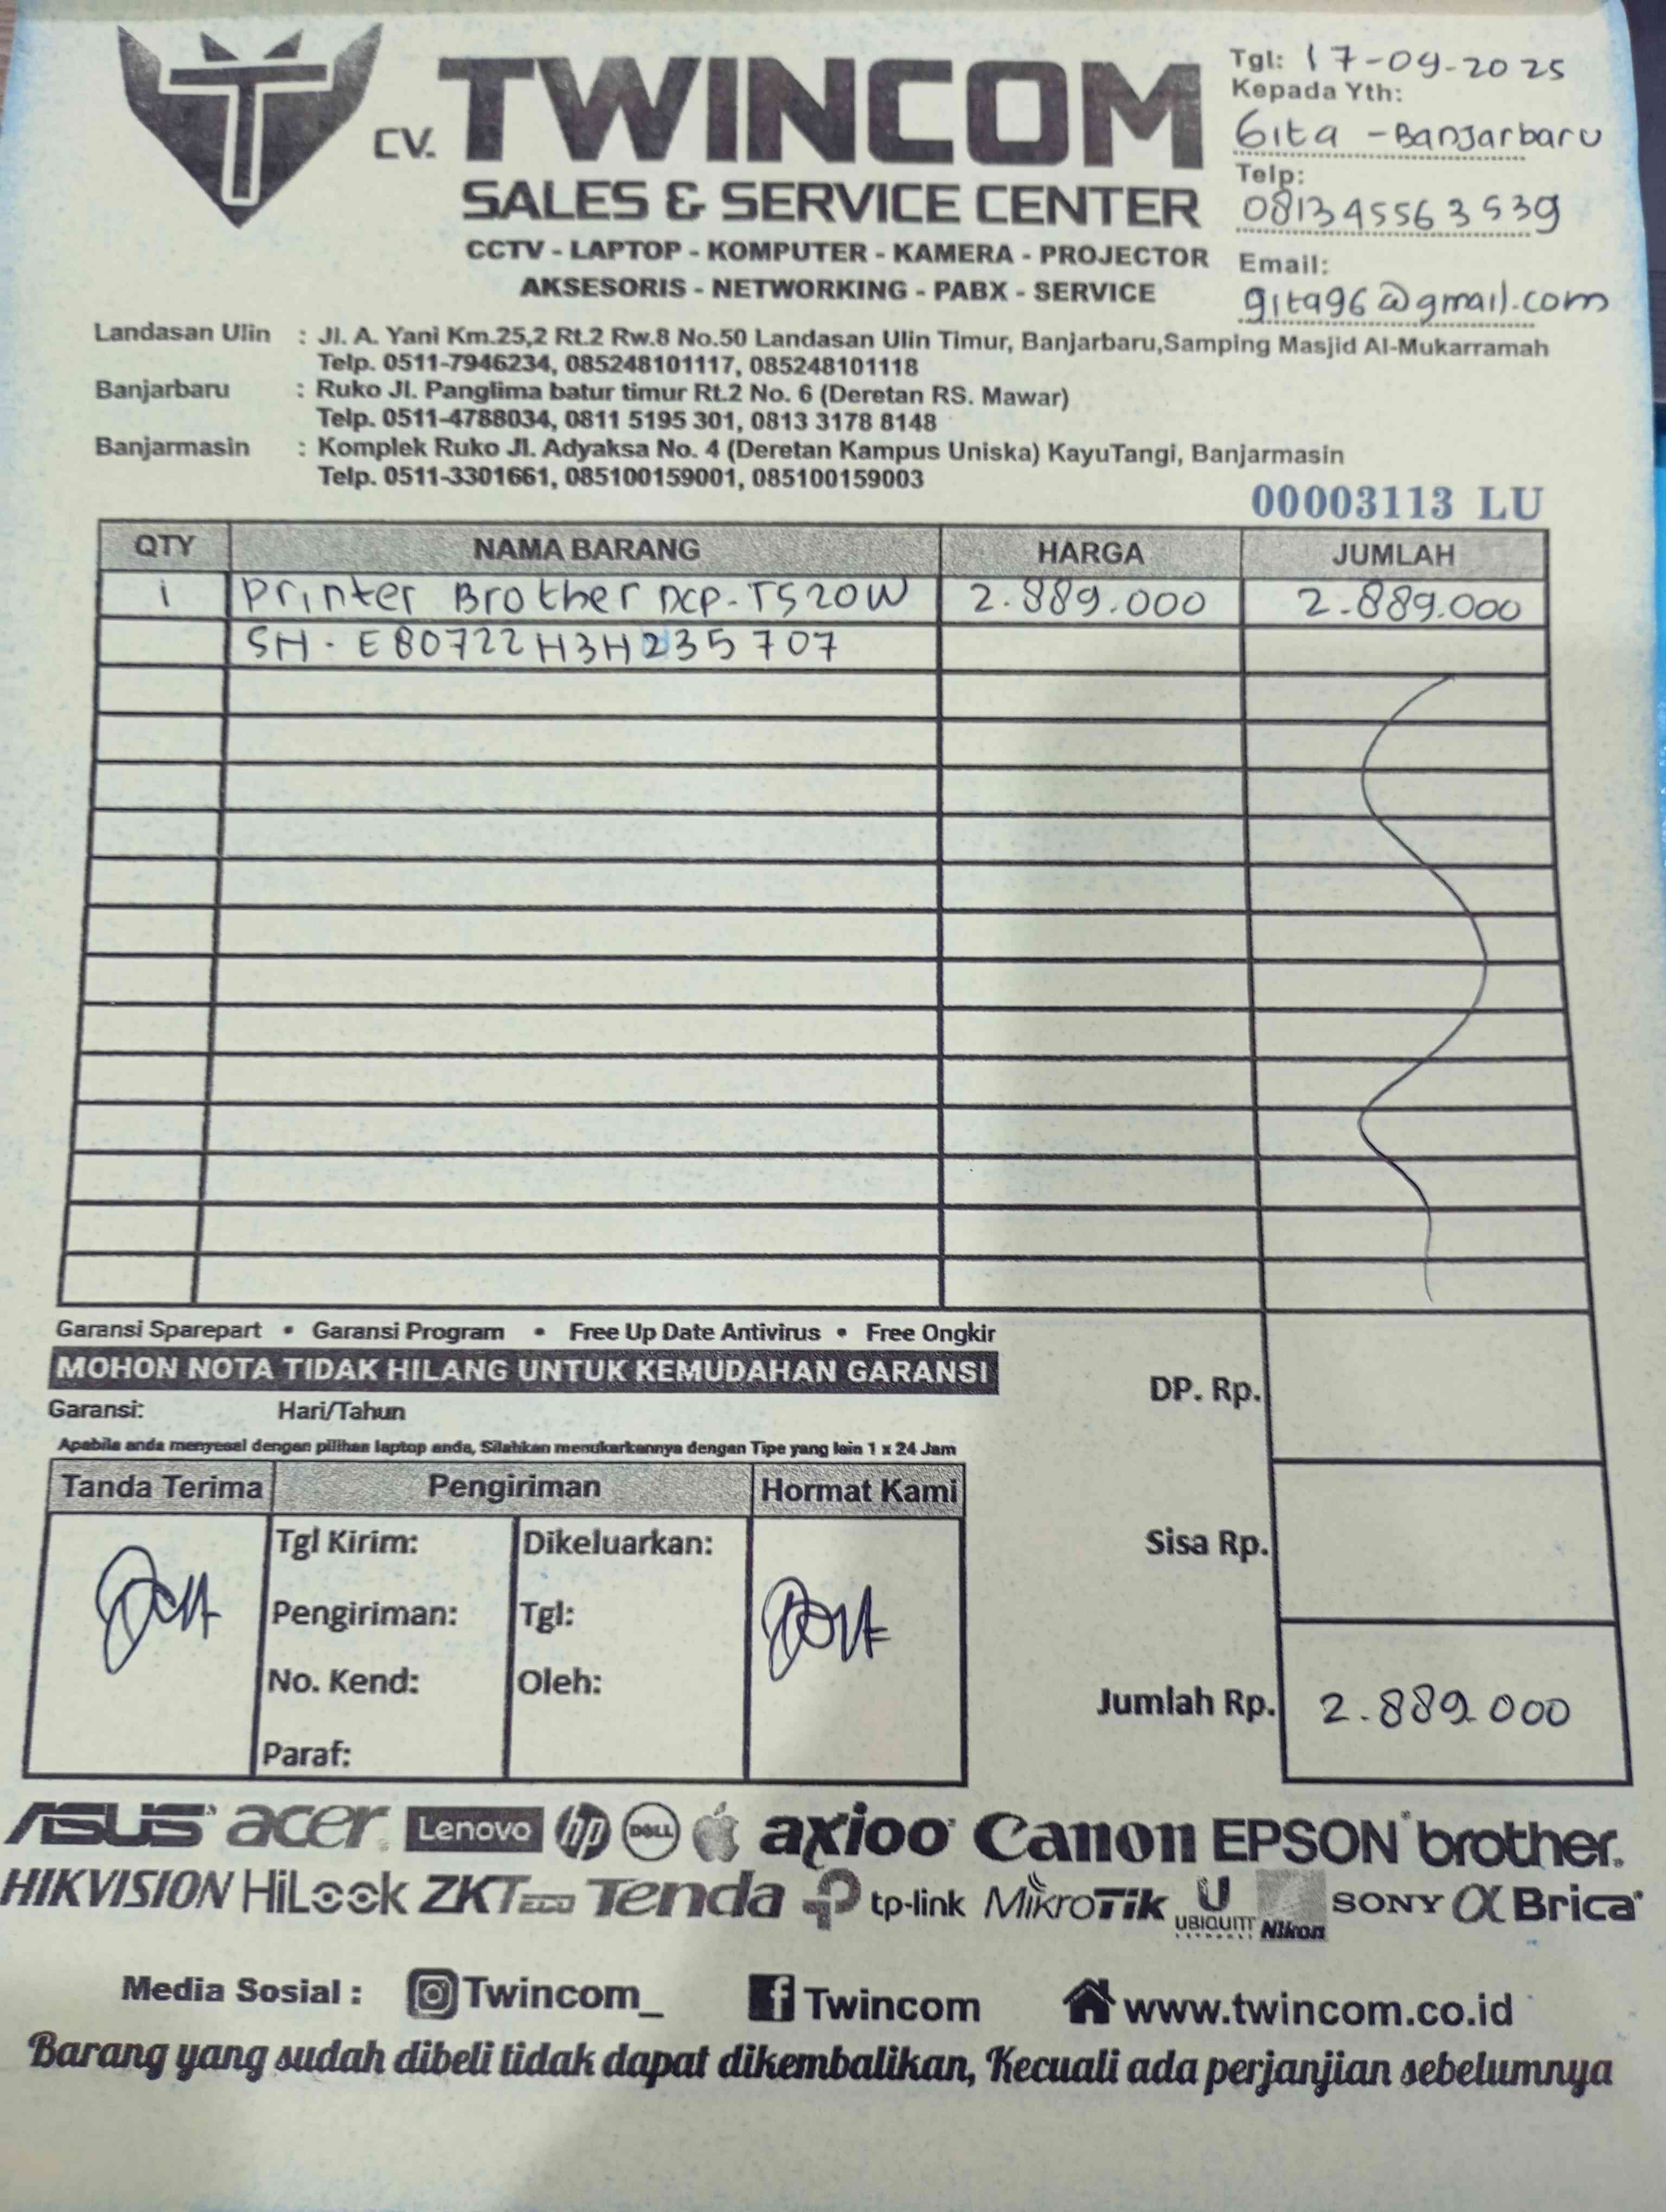 CV. TWINCOM
SALES & SERVICE CENTER
CCTV - LAPTOP - KOMPUTER - KAMERA - PROJECTOR
AKSESORIS - NETWORKING - PABX - SERVICE
Tgl: 17-09-2025
Kepada Yth:
Gita - Banjarbaru
Telp:
081345563539
Email:
gita96@gmail.com
Landasan Ulin : Jl. A. Yani Km.25,2 Rt.2 Rw.8 No.50 Landasan Ulin Timur, Banjarbaru,Samping Masjid Al-Mukarramah
Telp. 0511-7946234, 085248101117, 085248101118
Banjarbaru : Ruko Jl. Panglima batur timur Rt.2 No. 6 (Deretan RS. Mawar)
Telp. 0511-4788034, 0811 5195 301, 0813 3178 8148
Banjarmasin : Komplek Ruko Jl. Adyaksa No. 4 (Deretan Kampus Uniska) KayuTangi, Banjarmasin
Telp. 0511-3301661, 085100159001, 085100159003
00003113 LU
QTY NAMA BARANG HARGA JUMLAH
1 Printer Brother DCP-T520W 2.889.000 2.889.000
SH - E80722H3H235707
Garansi Sparepart • Garansi Program • Free Up Date Antivirus • Free Ongkir
MOHON NOTA TIDAK HILANG UNTUK KEMUDAHAN GARANSI
Garansi: Hari/Tahun
Apabila anda menyesal dengan pilihan laptop anda, Silahkan menukarkannya dengan Tipe yang lain 1 x 24 Jam
DP. Rp.
Sisa Rp.
Jumlah Rp. 2.889.000
Tanda Terima Pengiriman Hormat Kami
Tgl Kirim: Dikeluarkan:
Pengiriman: Tgl:
No. Kend: Oleh:
Paraf:
ASUS acer Lenovo hp DELL axioo Canon EPSON brother
HIKVISION HiLook ZKTeco Tenda tp-link MikroTik U UBIQUITI NETWORKS Nikon SONY α Brica
Media Sosial : Twincom_ Twincom www.twincom.co.id
Barang yang sudah dibeli tidak dapat dikembalikan, Kecuali ada perjanjian sebelumnya